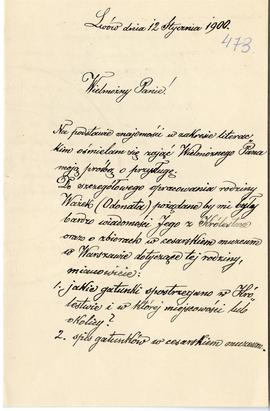 Lwów dnia 12 Stycznia 1900.
473.
Wielmożny Panie!
Na podstawie znajomości w zakresie literac-
kim ośmielam się zająć Wielmożnego Pana
moją prośbą o przysługę.
Do szczegółowego opracowania rodziny
Ważek (Odonata) pożądane by mi były
bardzo wiadomości Jego z Królestwa
oraz o zbiorach w cesarskiem muzeum
w Warszawie dotyczące tej rodziny,
mianowicie:
1. jakie gatunki spostrzeżono w Kró-
lestwie i w której miejscowości lub
okolicy?
2. spis gatunków w cesarskiem muzeum.